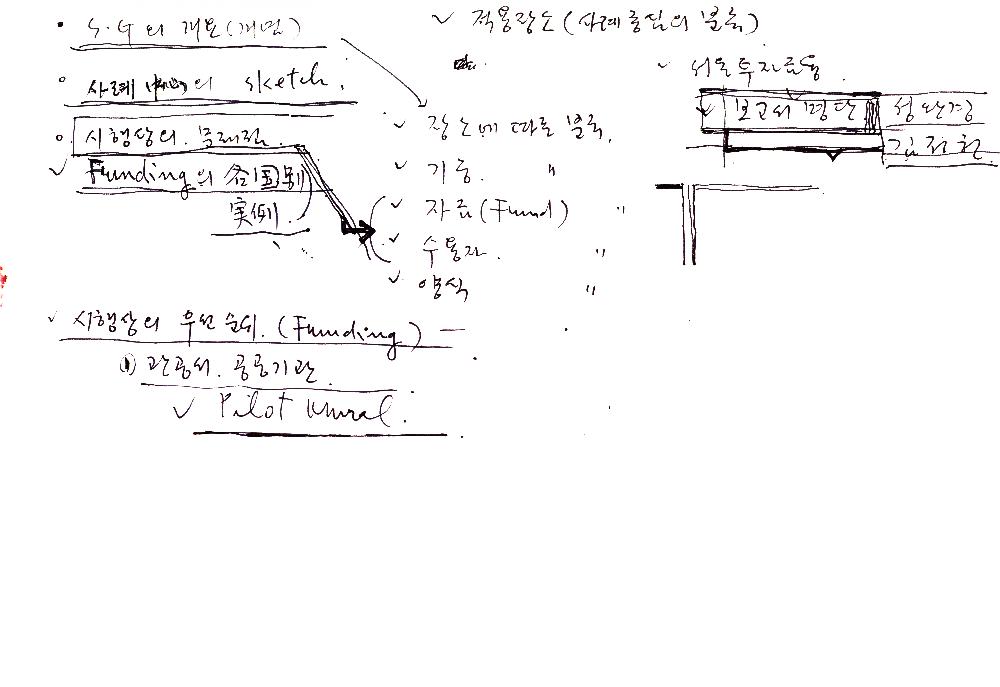 S.G의 개요(개념)
사례 의 sketch.
시행상의 문제점.
Funding의 各国別
実例.
시행상의 우선순위. (Funding) —
① 관공서. 공공기관.
✓ Pilot Mural.
✓ 적용장소(사례중심의 분류)
✓ 장소에 따른 분류.
✓ 기능. "
✓ 자금(Fund) "
✓ 수용자. "
✓ 양식 "
✓ 서울투자금융.
✓ 보고서 명단 성완경